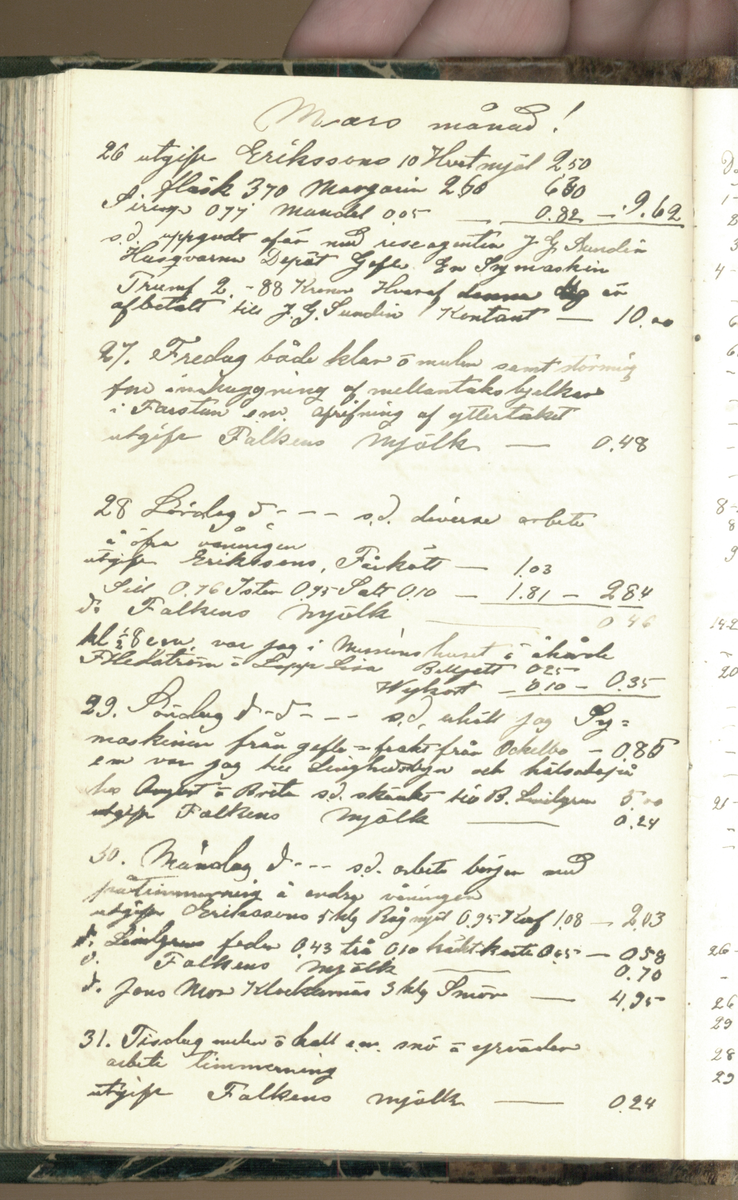 Mars månad!
26 utgift Erikssons 10 Hvetmjöl 2.50
fläsk 370 Margarin 260 630
Sirup 0.77 Mandel 0.05 — 0.82 — 9.62
s.d. uppgodt afär med reseagenten J G Sundin
Husqvarna Depôt Gefle En Symaskin
Triumf 2. - 88 Kronor Hvaraf denna dag är
afbetalt till J. G. Sundin Kontant — 10.00
27. Fredag både klar o mulen samt stormig
fm inhuggning af mellantaksbjelkar
i Farstun e.m. afrifning af yttertaket
utgift Falkens mjölk — 0.48
28 Lördag d - - - s.d. diverse arbete
å öfra våningen
utgift Erikssons, Fårkött — 1.03
Sill 0.76 Ister 0.95 Salt 0.10 — 1.81 — 2.84
d. Falkens mjölk — 0.46
kl ½ 8 e.m. var jag i Missionshuset å åhörde
Hedström o Lapp Lisa Biljett 0.25
Vykort — 0.10 — 0.35
29. Söndag d - d - - - s.d. erhöll jag Sy=
maskinen från Gefle = frakt från Ockelbo — 0.85
em var jag till Linghedsbyn och hälsade på
hos August o Brita s.d. skänkt till B. Lindgren 5.00
utgift Falkens mjölk — 0.24
30. Måndag d - - - s.d. arbete börjar med
påtimmerning å andra våningen
utgift Erikssons 5 klg Rågmjöl 0.95 Kaf 1.08 — 2.03
d. Lindgrens feder 0.43 trå 0.10 häkt 0.05 — 0.58
d. Falkens mjölk — 0.70
d. Jons Mor Klockarnäs 3 klg Smör — 4.95
31. Tisdag mulen o kall e.m. snö o yrväder
arbete timmerning
utgift Falkens mjölk — 0.24